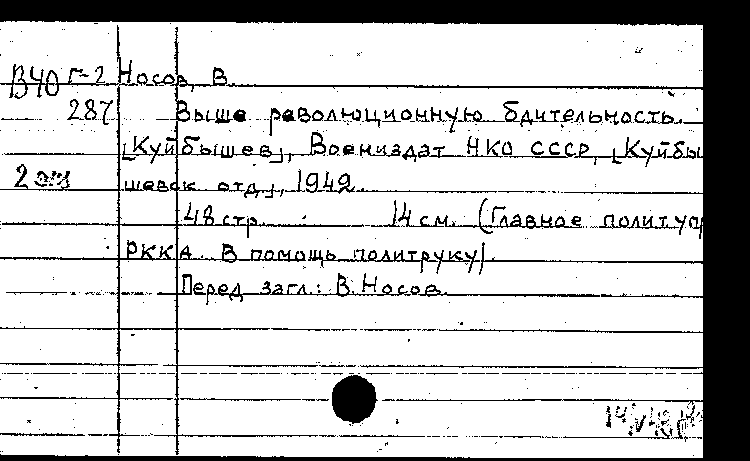 В40 Г-2 Носов, В.
287 Выше революционную бдительность.
[Куйбышев], Воениздат НКО СССР, [Куйбы
2 экз шевск отд.], 1942.
48 стр. 14 см. (Главное политупр
РККА. В помощь политруку).
Перед загл.: В. Носов.